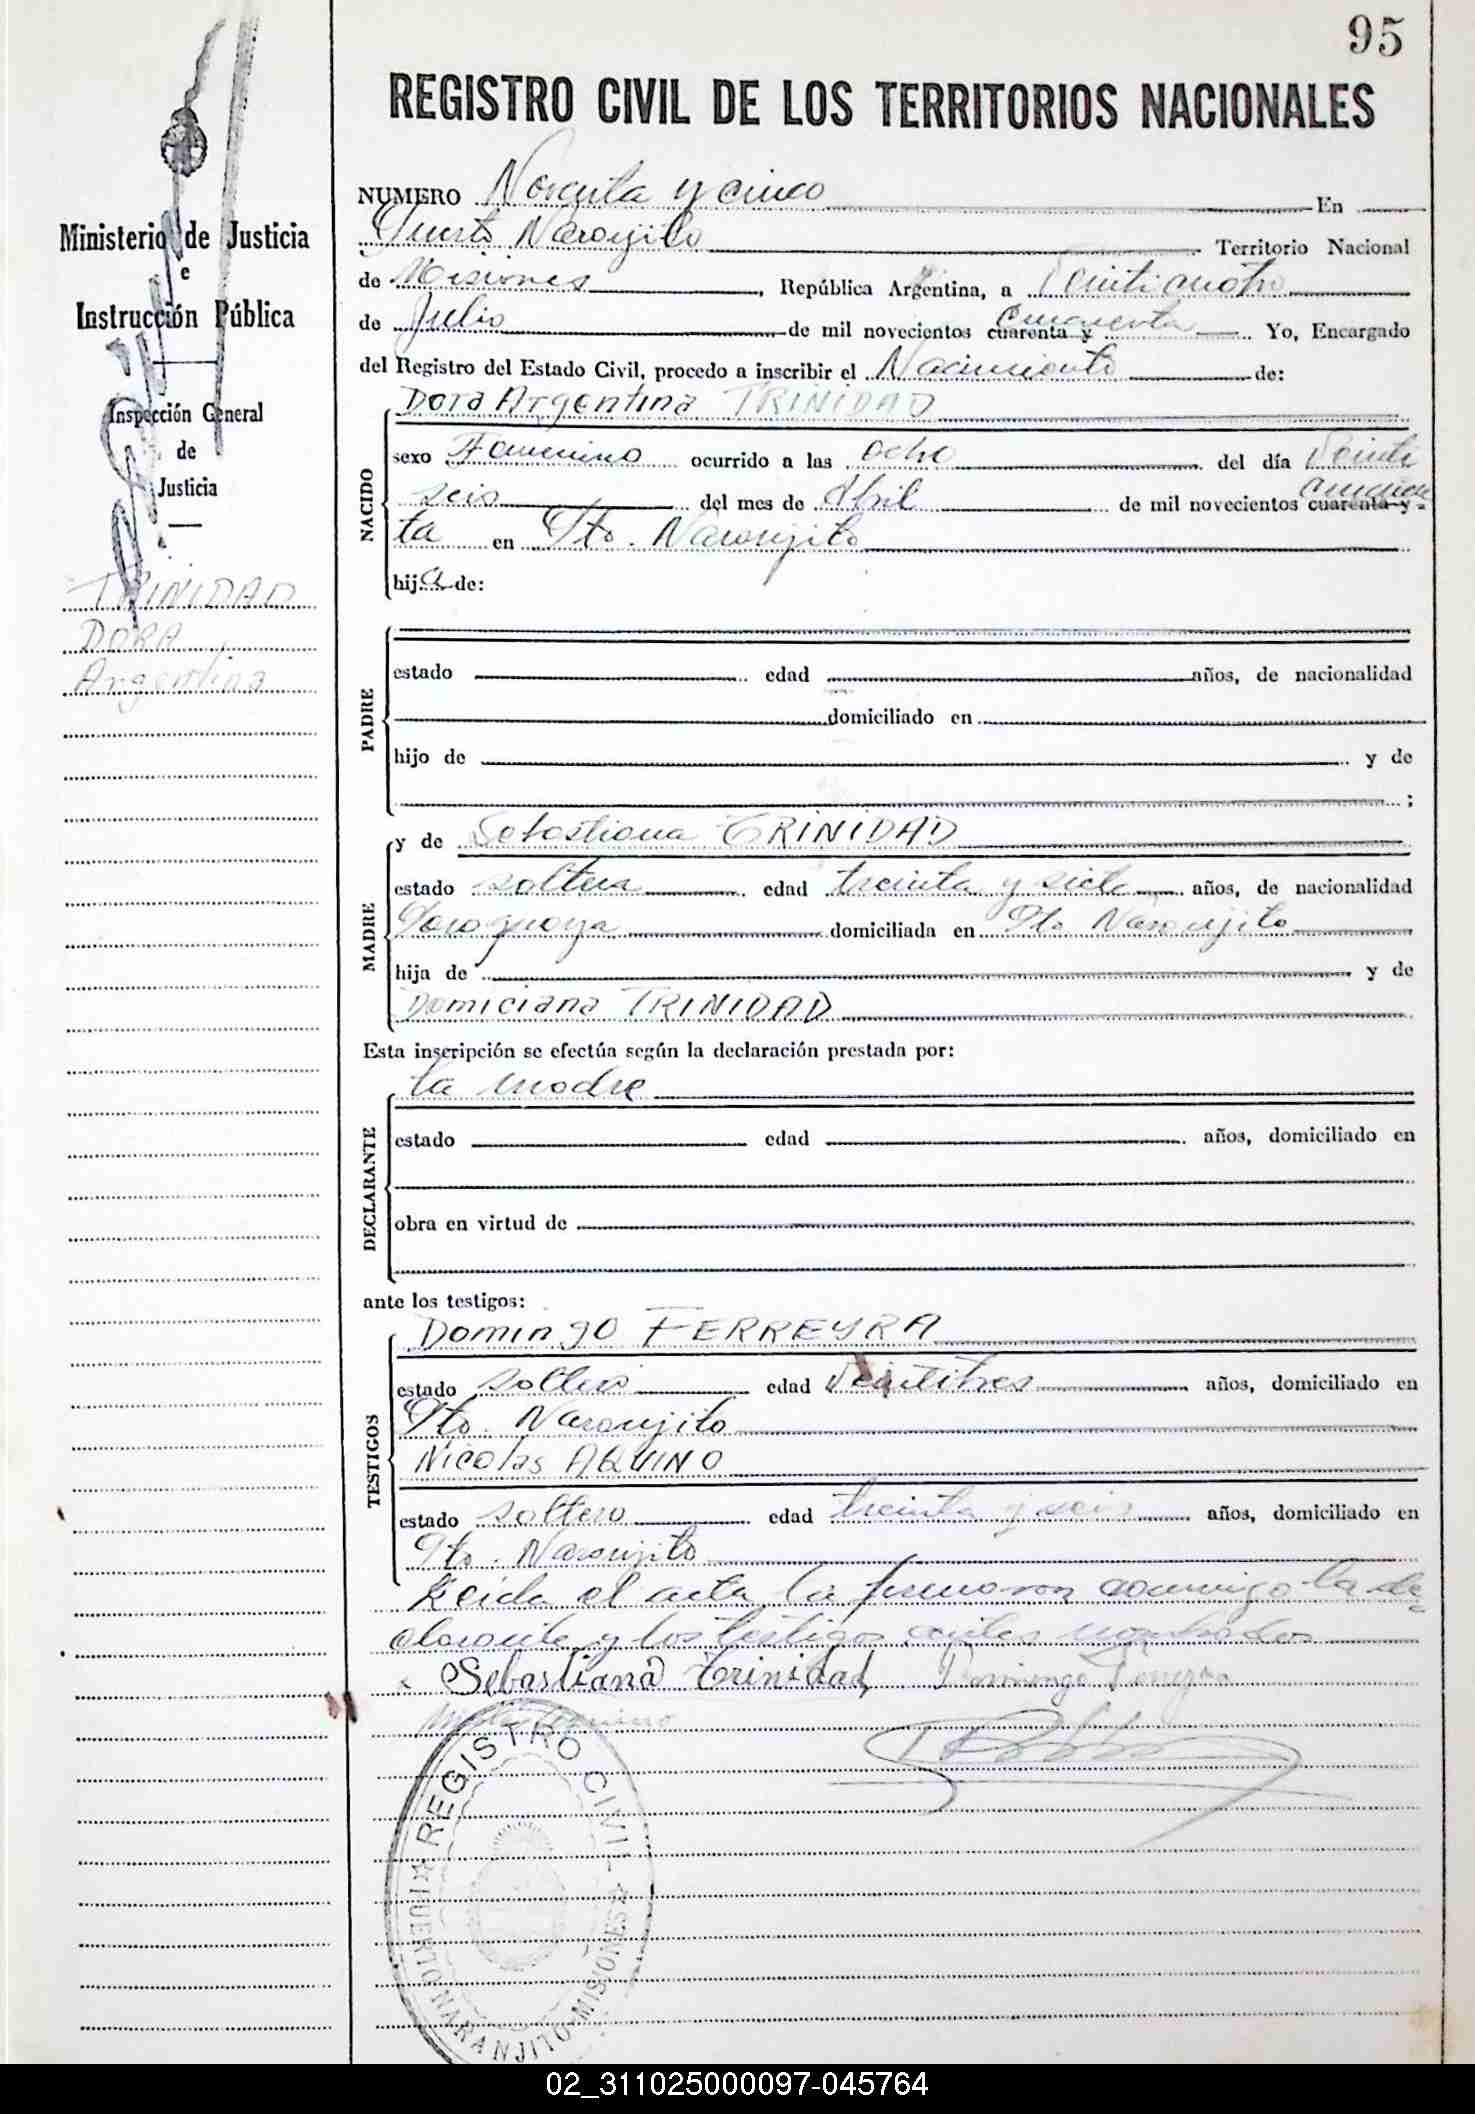 95
REGISTRO CIVIL DE LOS TERRITORIOS NACIONALES
Ministerio de Justicia
e
Instrucción Pública
Inspección General
de
Justicia
TRINIDAD
DORA
Argentina
NUMERO Noventa y cinco En
Puerto Naranjito Territorio Nacional
de Misiones, República Argentina, a Veinticuatro
de Julio de mil novecientos cuarenta y cincuenta Yo, Encargado
del Registro del Estado Civil, procedo a inscribir el Nacimiento de:
NACIDO
Dora Argentina TRINIDAD
sexo Femenino ocurrido a las ocho del día Veinti
seis del mes de Abril de mil novecientos cuarenta y cincuen
ta en Pto. Naranjito
hija de:
PADRE
estado edad años, de nacionalidad
domiciliado en
hijo de y de
;
MADRE
y de Sebastiana TRINIDAD
estado soltera edad treinta y siete años, de nacionalidad
Paraguaya domiciliada en Pto. Naranjito
hija de y de
Domiciana TRINIDAD
Esta inscripción se efectúa según la declaración prestada por:
DECLARANTE
la madre
estado edad años, domiciliado en
obra en virtud de
ante los testigos:
TESTIGOS
Domingo FERREYRA
estado soltero edad Veintitres años, domiciliado en
Pto. Naranjito
Nicolas AQUINO
estado soltero edad treinta y seis años, domiciliado en
Pto. Naranjito
Leída el acta la firmaron conmigo la de-
clarante y los testigos nombrados
Sebastiana Trinidad Domingo Ferreyra
REGISTRO CIVIL
PUERTO NARANJITO - MISIONES
02_311025000097-045764